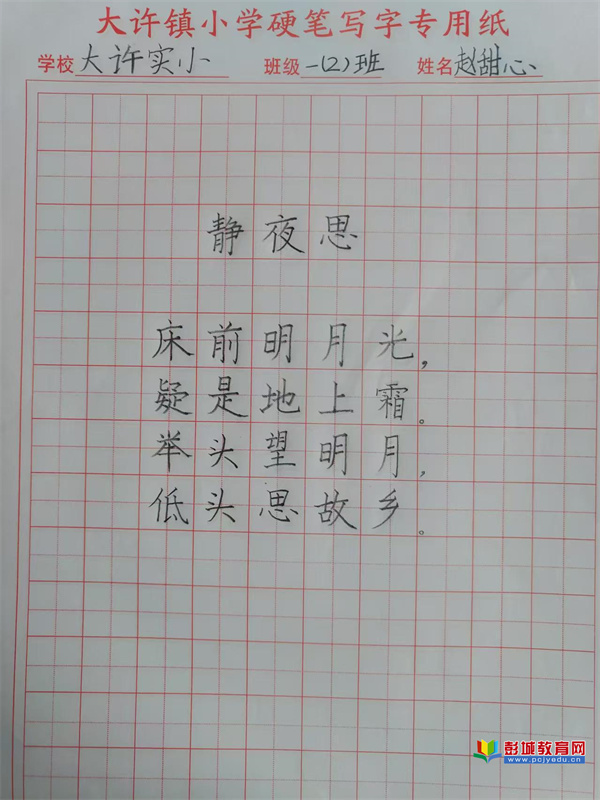 大许镇小学硬笔写字专用纸
学校 大许实小 班级 一(2)班 姓名 赵甜心
静夜思
床前明月光，
疑是地上霜。
举头望明月，
低头思故乡。
彭城教育网
www.pcjyedu.cn